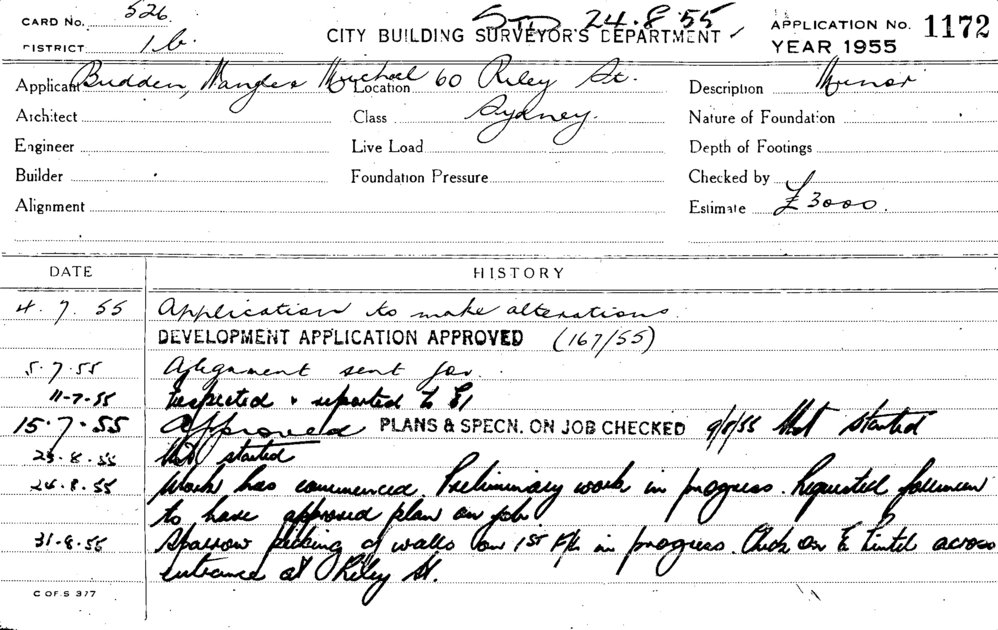 CARD No. 526. STD 24.8.55 APPLICATION No. 1172
DISTRICT 1b. CITY BUILDING SURVEYOR'S DEPARTMENT YEAR 1955
Applicant Budden, Nangle & Michael Location 60 Riley St. Description Minor
Architect Class Sydney. Nature of Foundation
Engineer Live Load Depth of Footings
Builder Foundation Pressure Checked by
Alignment Estimate £3000.
DATE HISTORY
4.7.55 Application to make alterations.
DEVELOPMENT APPLICATION APPROVED (167/55)
5.7.55 Alignment sent for.
11-7-55 Inspected & reported to
15.7.55 Approved PLANS & SPECN. ON JOB CHECKED 9/8/55 Not started
23.8.55 Not started
24.8.55 Work has commenced. Preliminary work in progress. Requested foreman
to have approved plan on job
31-8-55 Sparrow picking of walls on 1st Flr in progress. Check on Lintel across
entrance at Riley St.
C OF S 377